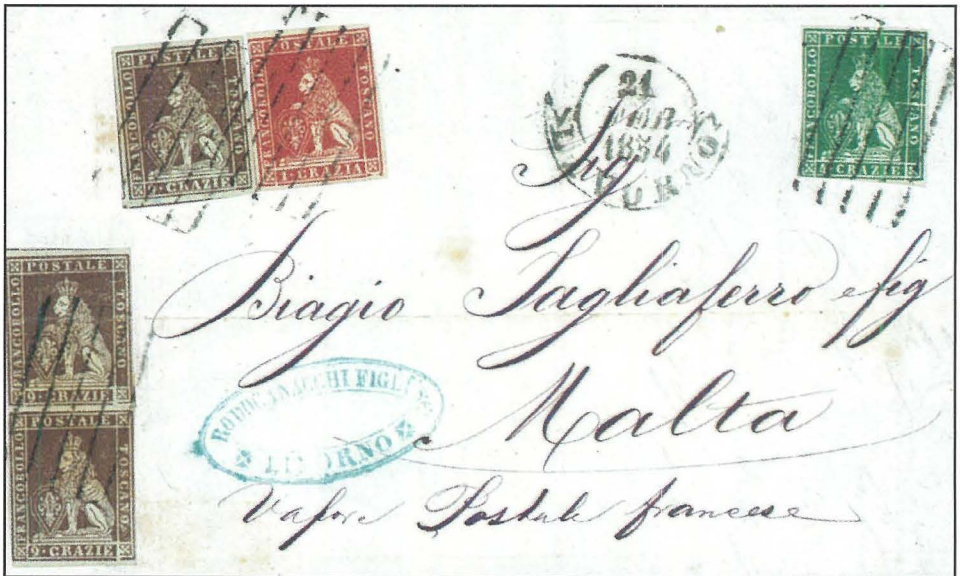 FRANCOBOLLO POSTALE TOSCANO
9·CRAZIE
FRANCOBOLLO POSTALE TOSCANO
1·CRAZIA
21
1854
FRANCOBOLLO POSTALE TOSCANO
4·CRAZIE
Sig
Biagio Tagliaferro e fig
Malta
Vapore Postale francese
FIGLI
LIVORNO
FRANCOBOLLO POSTALE TOSCANO
9·CRAZIE
FRANCOBOLLO POSTALE TOSCANO
9·CRAZIE